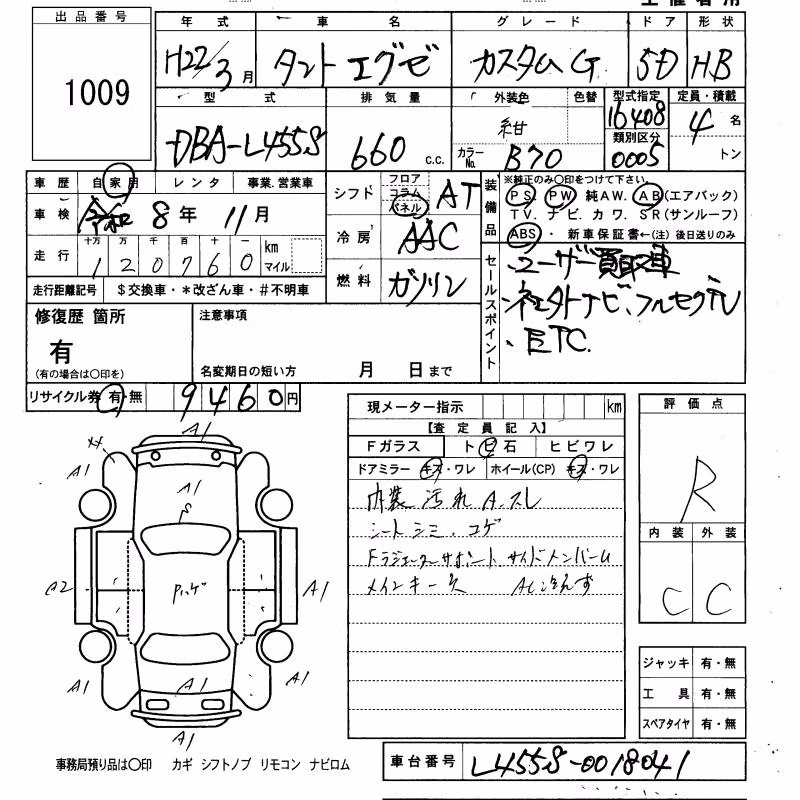 出品番号
1009
年式 車名 グレード ドア 形状
H22/3月 タントエグゼ カスタムG 5D HB
型式 排気量 外装色 色替 型式指定 定員・積載
DBA-L455S 660 c.c. 紺 16408 4名
カラーNo. B70 類別区分 0005 トン
車歴 自家用 レンタ 事業.営業車
車検 令和8年11月
走行 十万 万 千 百 十 一 km マイル
120760
走行距離記号 $交換車・*改ざん車・#不明車
シフト フロア コラム パネル AT
冷房 AAC
燃料 ガソリン
装備品 ※純正のみ○印をつけて下さい。
PS. PW 純AW. AB(エアバック)
TV. ナビ. カワ. SR(サンルーフ)
ABS・新車保証書←(注)後日送りのみ
セールスポイント
・ユーザー買取車
・社外ナビ、フルセグTV
・ETC.
修復歴 箇所 注意事項
有
(有の場合は○印を) 名変期日の短い方 月 日まで
リサイクル券 有・無 9460円
現メーター指示 km
【査定員記入】
Fガラス トビ石 ヒビワレ
ドアミラー キズ・ワレ ホイール(CP) キズ・ワレ
内装 汚れ A.スレ
シート シミ.コゲ
Fラジエターサポート サイドメンバーU
メインキー欠 AC冷えず
評価点
R
内装 外装
C C
ジャッキ 有・無
工具 有・無
スペアタイヤ 有・無
A1
XX
A1 A1 A1
A2 A1
A1 A1
A1
事務局預り品は○印 カギ シフトノブ リモコン ナビロム
車台番号 L455S-0018041